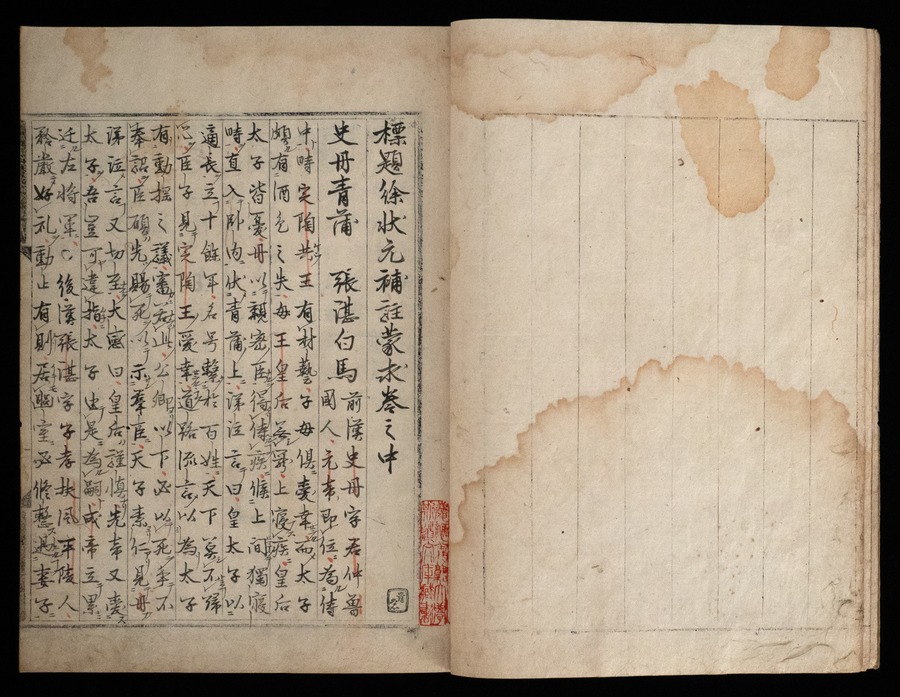 標題徐状元補註蒙求巻之中
史丹青蒲 張湛白馬 前漢史丹字君仲魯
國人元帝即位為侍
中時定陶共王有材藝子母倶愛幸而太子
頗有酒色之失母王皇后無寵上寝疾皇后
太子皆憂丹以親密臣得侍疾候上間獨寝
時直入卧内伏青蒲上涕泣言曰皇太子以
適長立十餘年名号繋於百姓天下莫不歸
心臣子見定陶王愛幸道路流言以為太子
有動揺之議審若此公卿以下必以死争不
奉詔臣願先賜死以示羣臣天子素仁見丹
涕泣言又切至大感曰皇后謹慎先帝又愛
太子吾豈可違指太子由是為嗣成帝立累
迁左将軍○後漢張湛字子孝扶風平陵人
矜嚴好礼動止有則居幽室必修整遇妻子